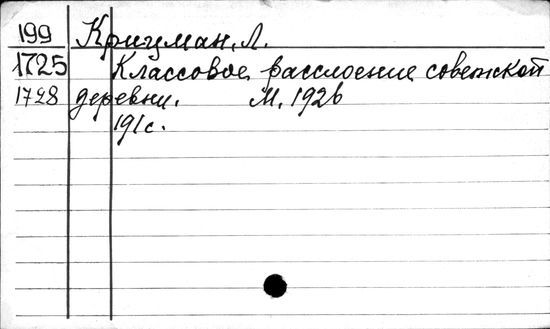 199 Крицман, Л.
1725 Классовое расслоение советской
1728 деревни. М. 1926
191 с.